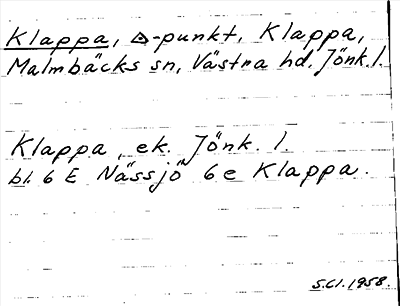 Klappa, △-punkt, Klappa,
Malmbäcks sn, Västra hd. Jönk. l.
Klappa, ek. Jönk. l.
bl. 6 E Nässjö 6 e Klappa.
S.Cl. 1958.